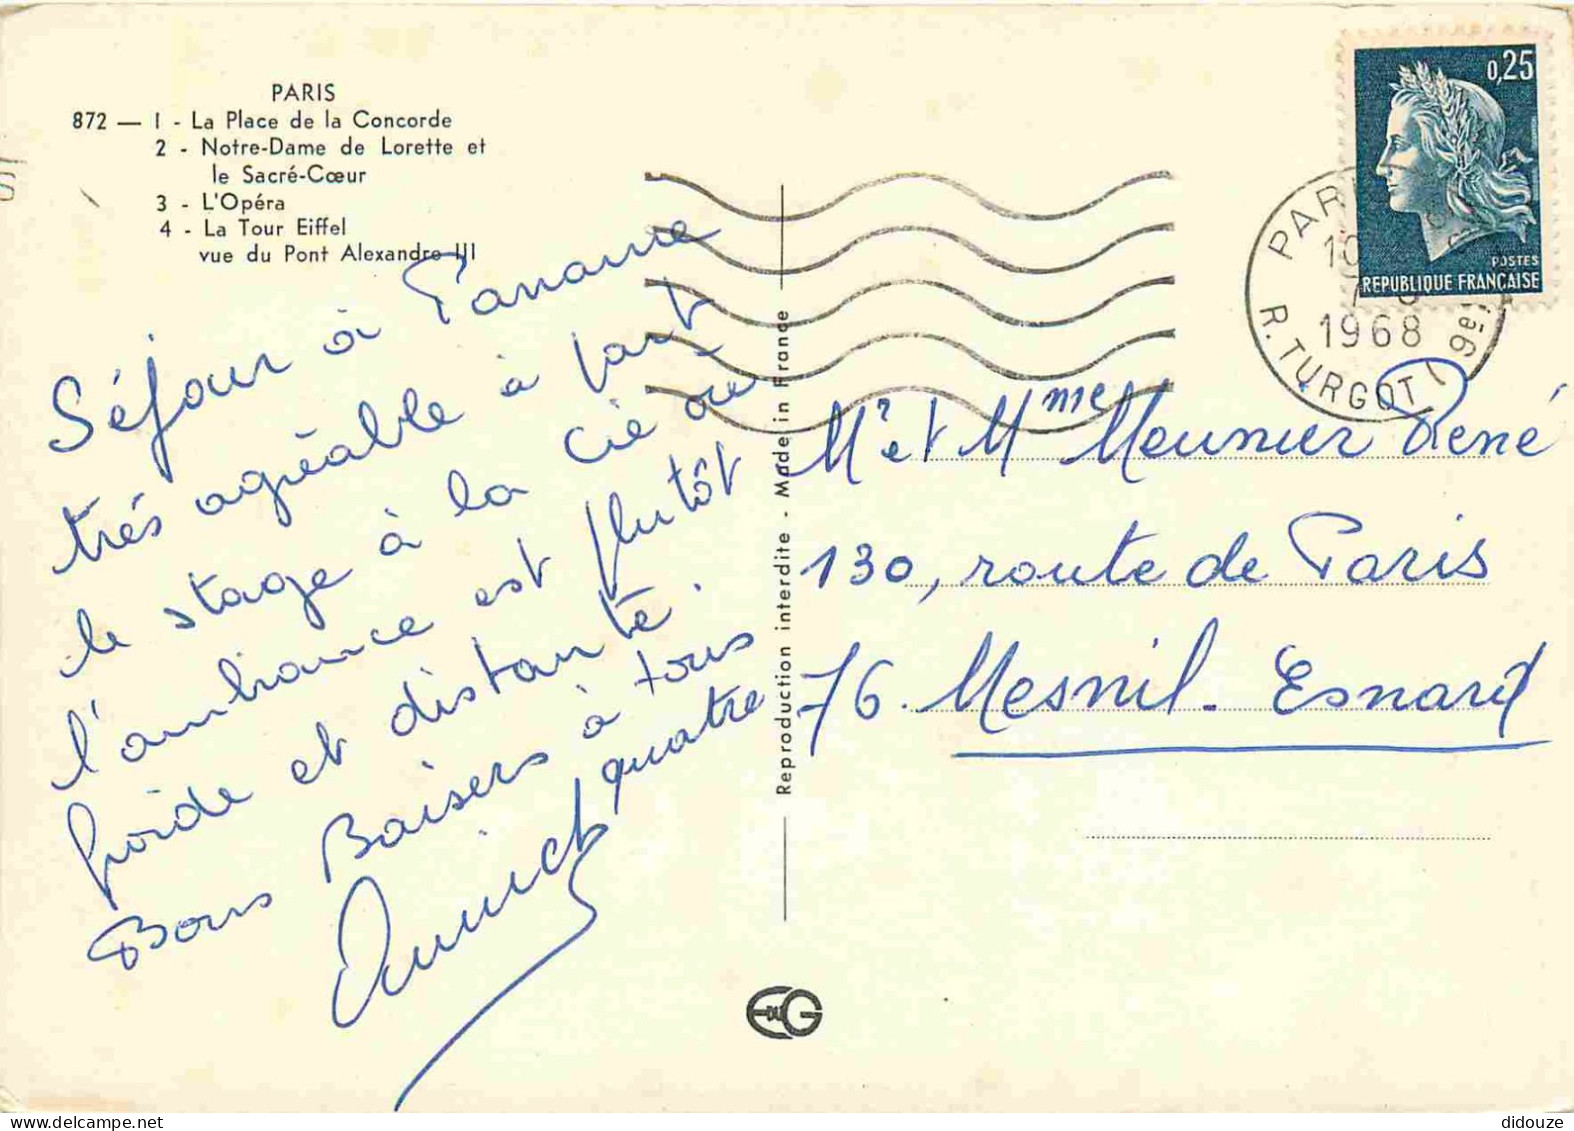 PARIS
872 — 1 - La Place de la Concorde
2 - Notre-Dame de Lorette et
le Sacré-Cœur
3 - L'Opéra
4 - La Tour Eiffel
vue du Pont Alexandre III
Séjour à Paname
trés agréable à part
le stage à la cie où
l'ambiance est plutôt
froide et distante.
Bons Baisers à tous
quatre
Reproduction interdite - Made in France
0,25
POSTES
REPUBLIQUE FRANÇAISE
PARIS
10
1968
R. TURGOT (9e)
Mr et Mme Meunier René
130, route de Paris
76. Mesnil-Esnard
EG
didouze